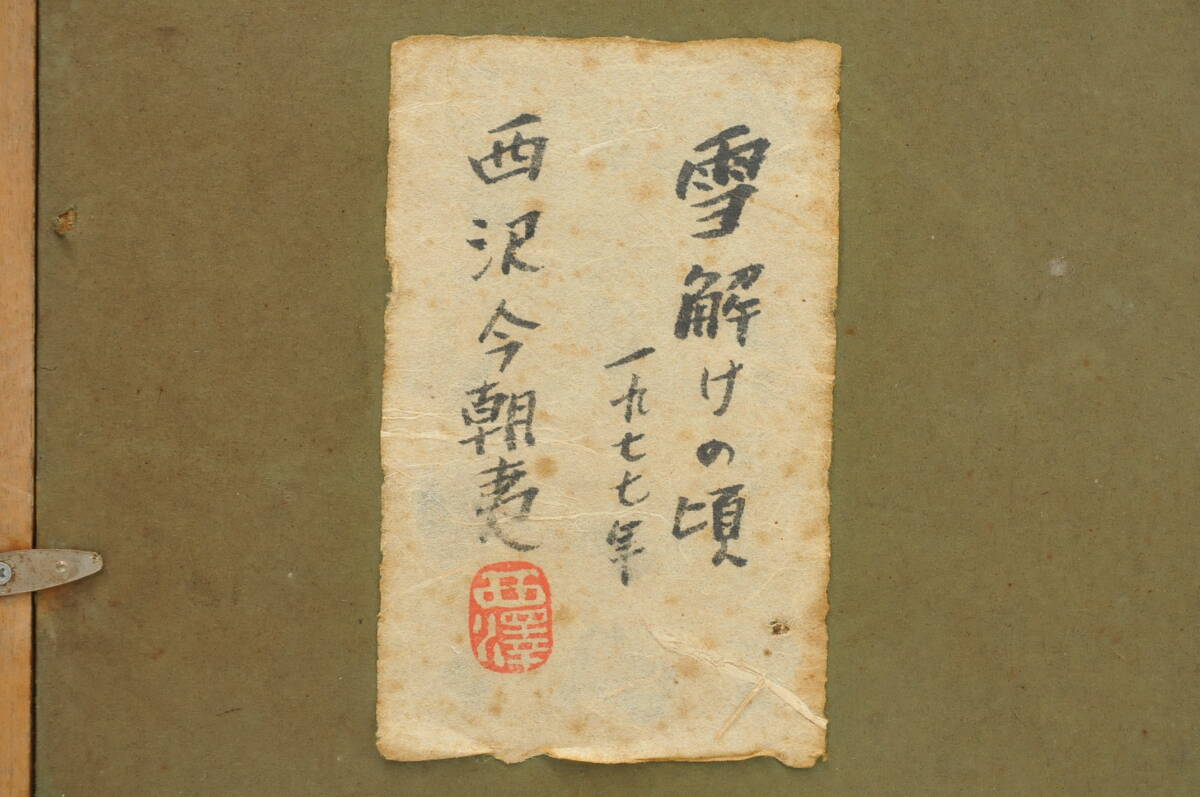 雪解けの頃
一九七七年
西沢今朝夷
西澤